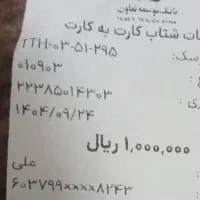 بانک توسعه تعاون
ات شتاب کارت به کارت
سک: TTH-۰۳-۵۱-۲۹۵
۰۱۰۹۰۳
: ۲۲۳۸۵۰۱۴۳۰۳
ری: ۱۴۰۴/۰۹/۲۴
۱,۰۰۰,۰۰۰ ریال
علی
۶۰۳۷۹۹xxxx۸۲۴۳